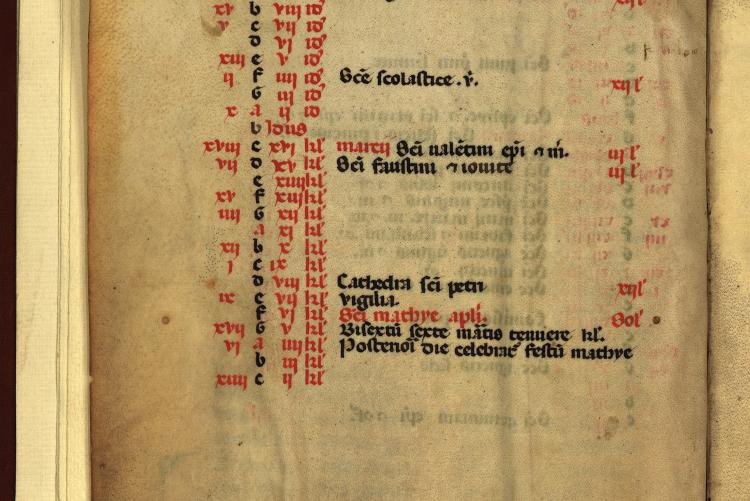 xv b viii id'
v c vii id'
D vi id'
xiii e v id'
ii f iiii id' Sce scolastice . v̄. xii l'
G iii id'
x a ii id'
b Idus
xviii c xvi kl' marcii Sci ualētini epī ⁊ m̄. iii l'
vii D xv kl' Sci faustini ⁊ iouite iii l'
e xiiii kl'
xv f xiii kl'
iiii G xii kl'
a xi kl'
xii b x kl'
i c ix kl'
D viii kl' Cathedra sci petri xii l'
ix e vii kl' vigilia.
f vi kl' Sci mathye apli. Sol'
xvii G v kl' Bisextū sexte mārtis tenuere kl'.
vi a iiii kl' Posteriori die celebrāt' festū mathye
b iii kl'
xiiii c ii kl'